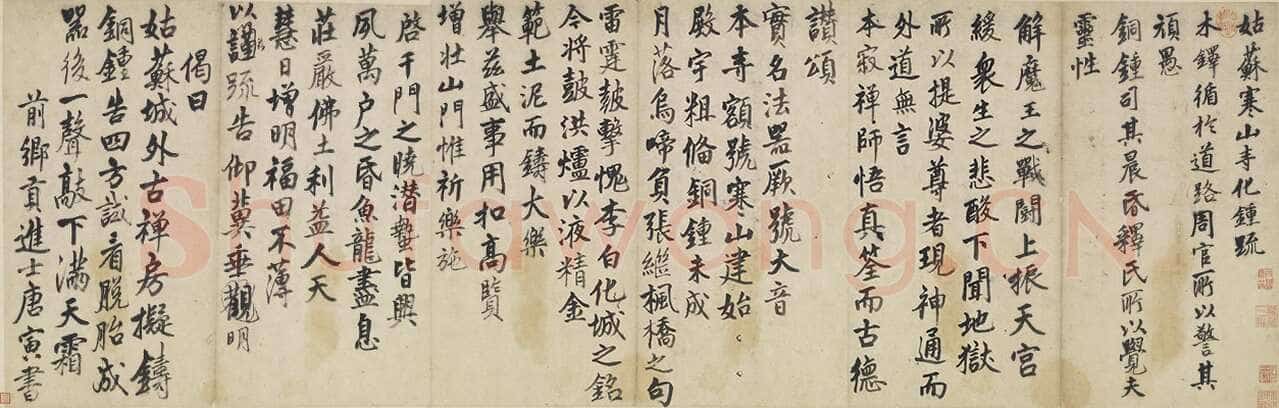 姑蘇寒山寺化鍾疏
木鐸循於道路周官所以警其
頑愚
銅鍾司其晨昏釋氏所以覺夫
靈性
解魔王之戰鬭上振天宮
緩衆生之悲酸下聞地獄
所以提婆尊者現神通而
外道無言
本寂禅師悟真筌而古德
讃頌
實名法器厥號大音
本寺額號寒山建始
殿宇粗俻銅鍾未成
月落烏啼負張繼楓橋之句
雷霆皷擊愧李白化城之銘
今将鼓洪爐以液精金
範土泥而鑄大樂
舉兹盛事用扣高賢
增壮山門惟祈樂施
啓千門之曉潜蟄皆興
夙萬户之昏魚龍盡息
莊嚴佛土利益人天
慧日增明福田不薄
以謹疏告仰冀垂觀明
偈曰
姑蘇城外古禅房擬鑄
銅鍾告四方試看脱胎成
器後一聲敲下滿天霜
前鄉貢進士唐寅書
Shufawang.CN